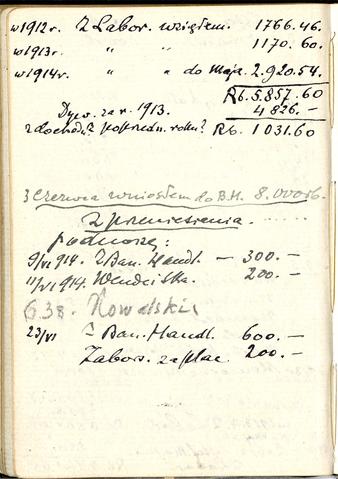 w 1912 r. Z Labor. wziąłem. 1766.46.
w 1913 r. " " 1170.60.
w 1914 r. " " do Maja. 2.920.54.
Rb. 5.857.60
Dyw. za r. 1913. 4826.—
z dochod. z poprzedn. roku? Rb. 1031.60
3 Czerwca wniosłem do B.H. 8.000 rb.
Z przeniesienia.
podnoszę:
9/VI 914. Z Ban. Handl. — 300.—
11/VI 914. 200.—
638. Kowalski
23/VI Z Ban. Handl. 600.—
Labor. zapłac. 200.—